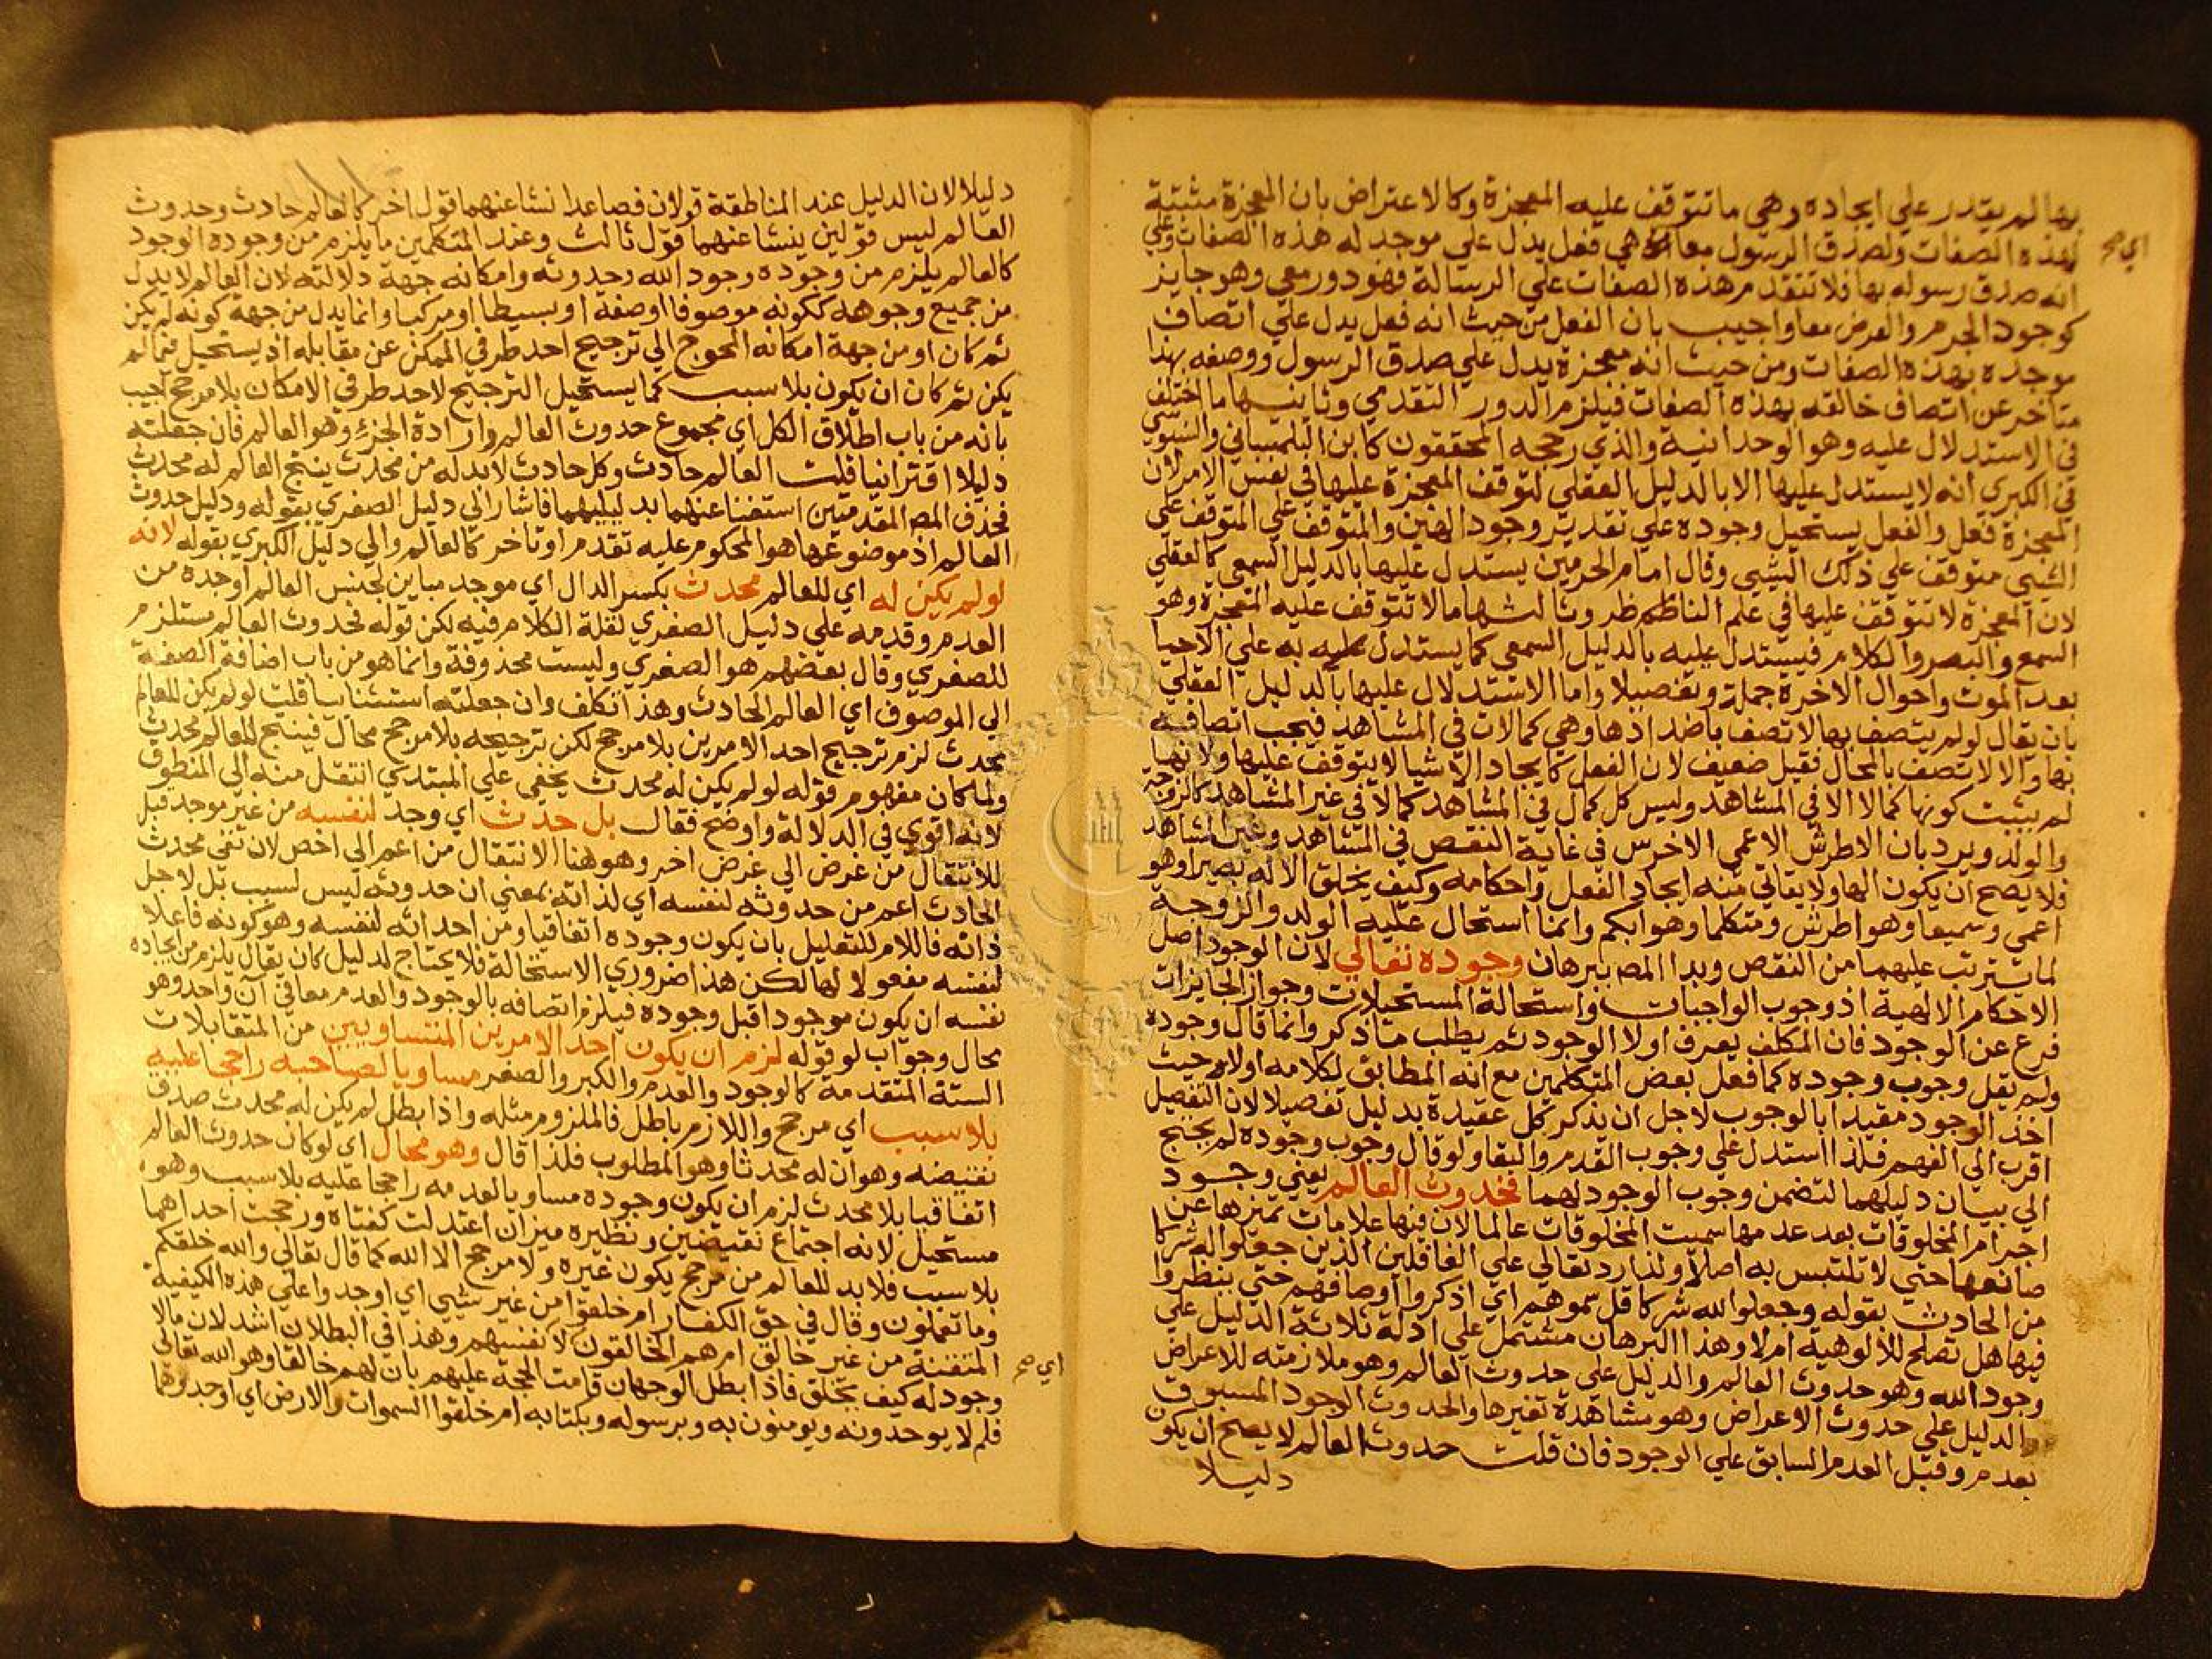 بها لم يقدر علي ايجاده وهي ما تتوقف عليه المعجزة وكالاعتراض بان المعجزة مثبتة
لهذه الصفات ولصدق الرسول معا اي هي فعل يدل علي موجد له هذه الصفات وعلي
انه صدق رسوله بها فلا تتقدم هذه الصفات علي الرسالة فهو دور معي وهو جايز
كوجود الجرم والعرض معا واجيب بان الفعل من حيث انه فعل يدل علي اتصاف
موجده بهذه الصفات ومن حيث انه معجزة يدل علي صدق الرسول ووصفه بهذا
متاخر عن اتصاف خالقه بهذه الصفات فيلزم الدور التقدمي وثانيها ما اختلف
في الاستدلال عليه وهو الوحدانية والذي رجحه المحققون كابن التلمساني والسنوسي
في الكبري انه لا يستدل عليها الا بالدليل العقلي لتوقف المعجزة عليها في نفس الامر لان
المعجزة فعل والفعل يستحيل وجوده علي تقدير وجود الهين والمتوقف علي المتوقف علي
الشيي متوقف علي ذلك الشيي وقال امام الحرمين يستدل عليها بالدليل السمعي كالعقلي
لان المعجزة لا تتوقف عليها في علم الناظم ظر وثالثها ما لا تتوقف عليه المعجزة وهو
السمع والبصر والكلام فيستدل عليه بالدليل السمعي كما يستدل به علي الاحيا
بعد الموت واحوال الاخرة جملة وتفصيلا واما الاستدلال عليها بالدليل العقلي
بان يقال لو لم يتصف بها لاتصف باضدادها وهي كمالات في المشاهد فيجب اتصافه
بها والا لاتصف بالمحال فقيل ضعيف لان الفعل كايجاد الاشيا لا يتوقف عليها ولانها
لم يثبت كونها كمالا الا في المشاهد وليس كل كمال في المشاهد كمالا في غير المشاهد كالزوجة
والولد ويرد بان الاطرش الاعمي الاخرس في غاية النقص في المشاهد وغير المشاهد
فلا يصح ان يكون الها ولا يتاتي منه ايجاد الفعل واحكامه وكيف يخلق الاله بصيرا وهو
اعمي وسميعا وهو اطرش ومتكلما وهو ابكم وانما استحال عليه الولد والزوجة
لما يترتب عليهما من النقص وبدا المصـ ببرهان وجوده تعالي لان الوجود اصل
الاحكام الالهية اذ وجوب الواجبات واستحالة المستحيلات وجواز الجايزات
فرع عن الوجود فان المكلف يعرف اولا الوجود ثم يطلب ما ذكر وانما قال وجوده
ولم يقل وجوب وجوده كما فعل بعض المتكلمين مع انه المطابق لكلامه اولا حيث
اخذ الوجود مقيدا بالوجوب لاجل ان يذكر كل عقيدة بدليل تفصيلا لان التفصيل
اقرب الي الفهم فلذا استدل علي وجوب القدم والبقا ولو قال وجوب وجوده لم يحتج
الي بيان دليلهما لتضمن وجوب الوجود لهما فحدوث العالم يعني وجود
اجرام المخلوقات بعد عدمها سميت المخلوقات عالما لان فيها علامات تميزها عن
صانعها حتي لا تلتبس به اصلا ولذا رد تعالي علي الغافلين الذين جعلوا له شركا
من الحادث بقوله وجعلوا لله شركا قل سموهم اي اذكروا اوصافهم حتي ينظروا
فيها هل تصلح للالوهية ام لا وهذا البرهان مشتمل علي ادلة ثلاثة الدليل علي
وجود الله وهو حدوث العالم والدليل علي حدوث العالم وهو ملازمته للاعراض
والدليل علي حدوث الاعراض وهو مشاهدة تغيرها والحدوث الوجود المسبوق
بعدم وقيل العدم السابق علي الوجود فان قلت حدوث العالم لا يصح ان يكون
دليلا
اي صح
دليلا لان الدليل عند المناطقة قولان فصاعدا نشا عنهما قول اخر كالعالم حادث وحدوث
العالم ليس قولين ينشا عنهما قول ثالث وعند المتكلمين ما يلزم من وجوده الوجود
كالعالم يلزم من وجوده وجود الله وحدوثه وامكانه جهة دلالته لان العالم لا يدل
من جميع وجوهه ككونه موصوفا او صفة او بسيطا او مركبا وانما يدل من جهة كونه لم يكن
ثم كان او من جهة امكانه المحوج الي ترجيح احد طرفي الممكن عن مقابله اذ يستحيل فيما لم
يكن ثم كان ان يكون بلا سبب كما يستحيل الترجيح لاحد طرفي الامكان بلا مرجح اجيب
بانه من باب اطلاق الكل اي مجموع حدوث العالم وارادة الجزء وهو العالم فان جعلته
دليلا اقترانيا قلت العالم حادث وكل حادث لا بد له من محدث ينتج العالم له محدث
فحذف المصـ المقدمتين استغنا عنهما بدليليهما فاشار الي دليل الصغري بقوله ودليل حدوث
العالم اذ موضوعها هو المحكوم عليه تقدم او تاخر كالعالم والي دليل الكبري بقوله لانه
لو لم يكن له اي للعالم محدث بكسر الدال اي موجد مباين لجنس العالم اوجده من
العدم وقدمه علي دليل الصغري لقلة الكلام فيه لكن قوله فحدوث العالم مستلزم
للصغري وقال بعضهم هو الصغري وليست محذوفة وانما هو من باب اضافة الصفة
الي الموصوف اي العالم الحادث وهذا تكلف وان جعلته استثنائيا قلت لو لم يكن للعالم
محدث لزم ترجيح احد الامرين بلا مرجح لكن ترجيحه بلا مرجح محال فينتج للعالم محدث
ولما كان مفهوم قوله لو لم يكن له محدث يخفي علي المبتدي انتقل منه الي المنطوق
لانه اقوي في الدلالة واوضح فقال بل حدث اي وجد لنفسه من غير موجد قبل
للانتقال من غرض الي غرض اخر وهو هنا الانتقال من اعم الي اخص لان نفي محدث
الحادث اعم من حدوثه لنفسه اي لذاته بمعني ان حدوثه ليس لسبب بل لاجل
ذاته فاللام للتعليل بان يكون وجوده اتفاقيا ومن احداثه لنفسه وهو كونه فاعلا
لنفسه مفعولا لها لكن هذا ضروري الاستحالة فلا يحتاج لدليل كان يقال يلزم من ايجاده
نفسه ان يكون موجودا قبل وجوده فيلزم اتصافه بالوجود والعدم معا في آن واحد وهو
محال وجواب لو قوله لزم ان يكون احد الامرين المتساويين من المتقابلات
الستة المتقدمة كالوجود والعدم والكبر والصغر مساويا لصاحبه راجحا عليه
بلا سبب اي مرجح واللازم باطل فالملزوم مثله واذا بطل لم يكن له محدث صدق
نقيضه وهو ان له محدثا وهو المطلوب فلذا قال وهو محال اي لو كان حدوث العالم
اتفاقيا بلا محدث لزم ان يكون وجوده مساويا لعدمه راجحا عليه بلا سبب وهو
مستحيل لانه اجتماع نقيضين ونظيره ميزان اعتدلت كفتاه ورجحت احداهما
بلا سبب فلا بد للعالم من مرجح يكون غيره ولا مرجح الا الله كما قال تعالي والله خلقكم
وما تعملون وقال في حق الكفار ام خلقوا من غير شيي اي اوجدوا علي هذه الكيفية
المتقنة من غير خالق ام هم الخالقون لانفسهم وهذا في البطلان اشد لان ما لا
وجود له كيف يخلق فاذا بطل الوجهان قامت الحجة عليهم بان لهم خالقا وهو الله تعالي
فلم لا يوحدونه ويومنون به وبرسوله وبكتابه ام خلقوا السموات والارض اي اوجدوهما
اي صح